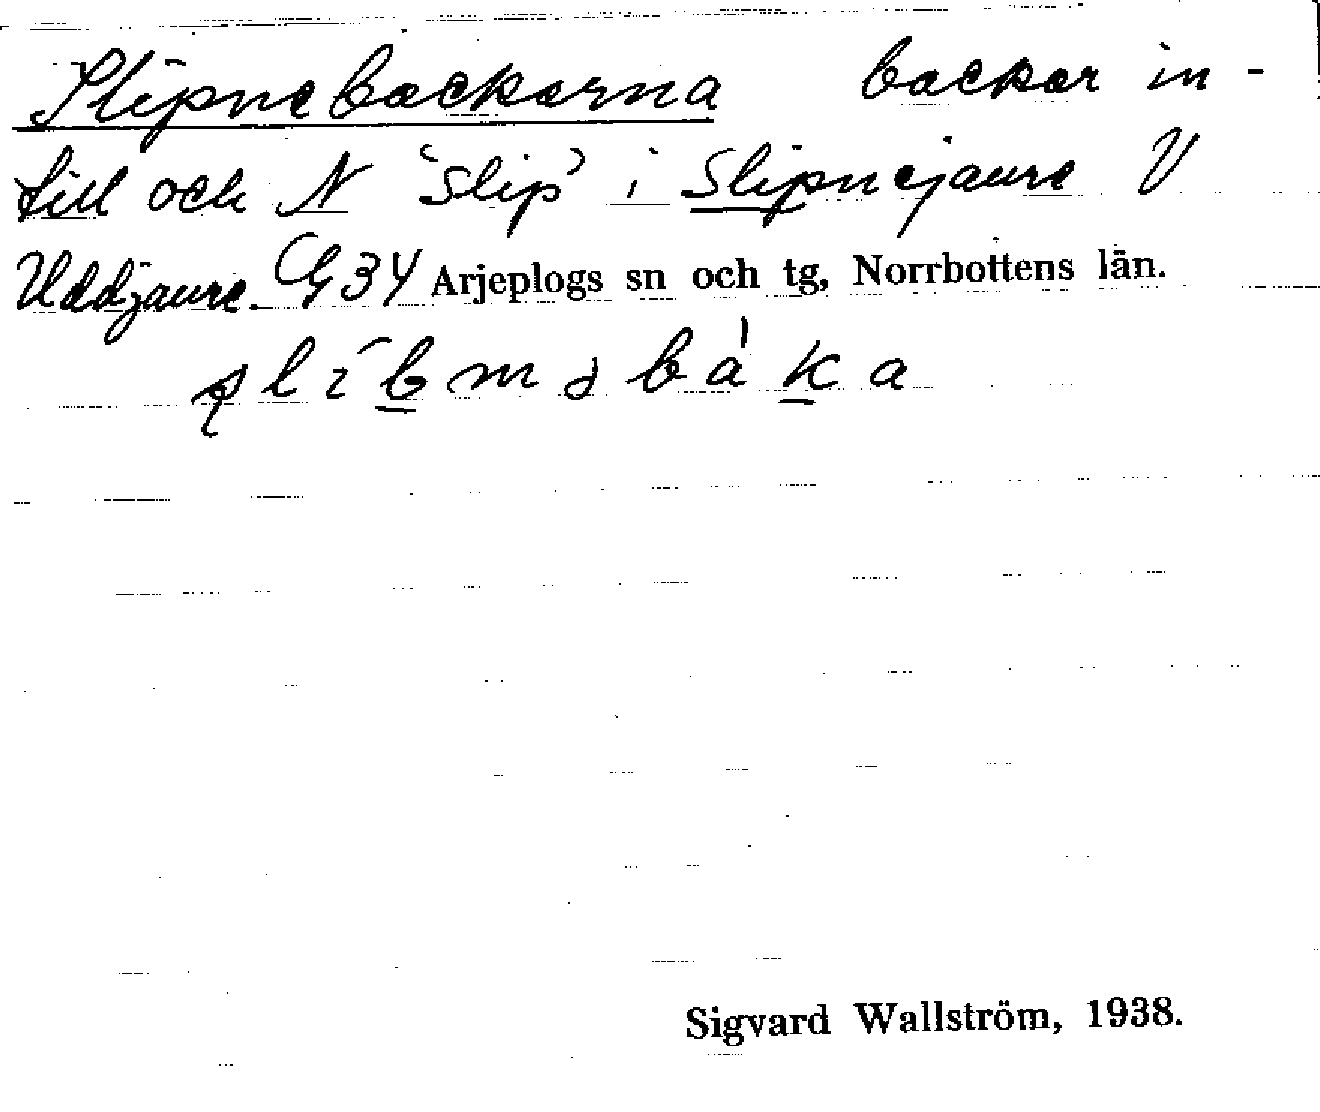 Slipnebackarna backar in-
till och N 'Slip' i Slipnejaure V
Uddjaure. G34 Arjeplogs sn och tg, Norrbottens län.
Sigvard Wallström, 1938.